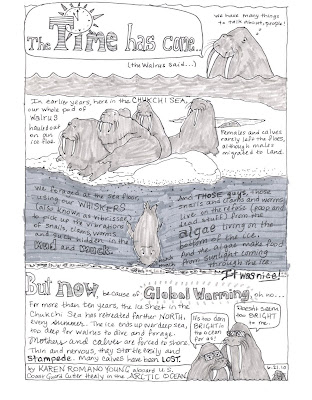 The Time has come..
(the Walrus said...)
We have many things
to talk about, people!
In earlier years, here in the CHUKCHI SEA,
our whole pod of
walrus
hauled out
on an
ice floe.
Females and calves
rarely left the floes,
although males
migrated to land.
We foraged at the sea floor,
using our WHISKERS
(also known as vibrissae)
to pick up the vibrations
of snails, clams, worms,
and guess hidden in the
mud and muck.
And THOSE guys, those
snails and clams and worms,
live on the refuse (poop and
dead stuff) from the
algae living on the
bottom of the ice.
And the algae make food
from sunlight coming
through the ice.
It was nice!
But now, because of Global Warming, oh no...
For more than ten years, the Ice Sheet in the
Chukchi Sea has retreated farther NORTH,
every summer. The ice ends up over deep sea,
too deep for walrus to dive and forage.
Mothers and calves are forced to shore.
Thin and nervous, they startle easily and
Stampede. Many calves have been LOST.
by KAREN ROMANO YOUNG aboard U.S.
Coast Guard Cutter Healy in the ARCTIC OCEAN
It's too darn
BRIGHT in
the ocean
for us!
Doesn't seem
too BRIGHT
to me.
6.21.10